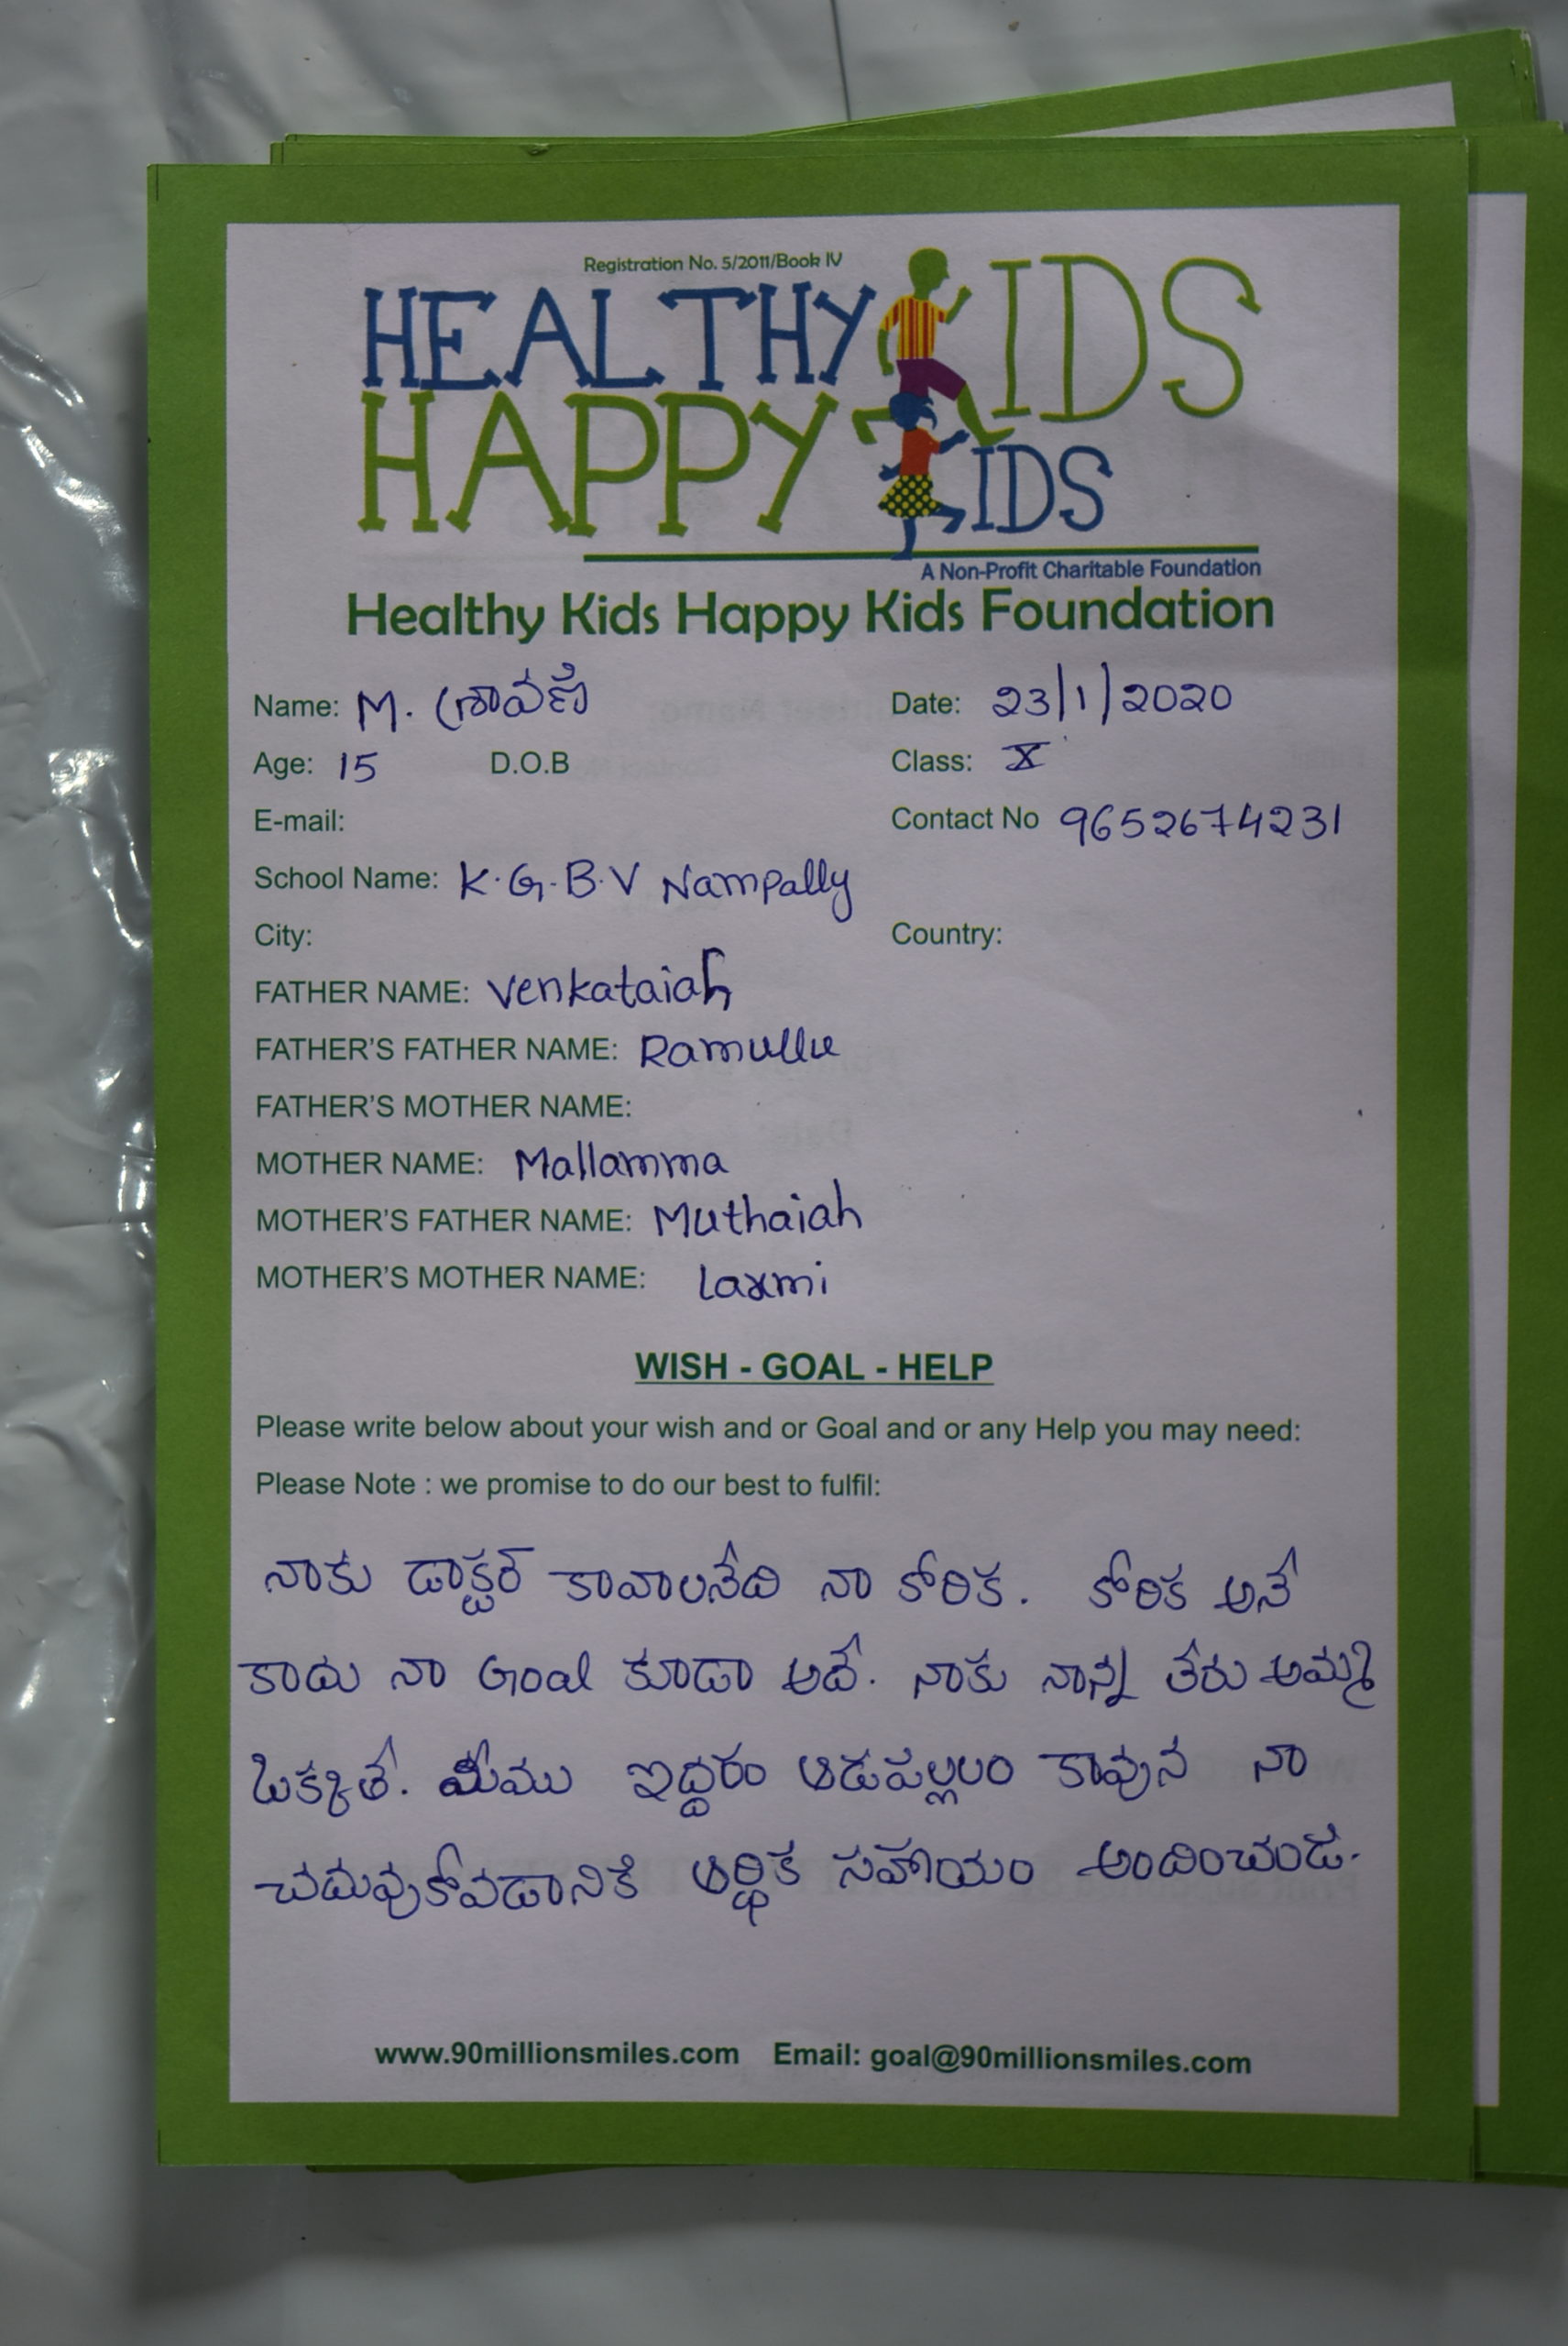 Registration No. 5/2011/Book IV
HEALTHY KIDS
HAPPY KIDS
A Non-Profit Charitable Foundation
Healthy Kids Happy Kids Foundation
Name: M. శ్రావణి Date: 23/1/2020
Age: 15 D.O.B Class: X
E-mail: Contact No 9652674231
School Name: K.G.B.V Nampally
City: Country:
FATHER NAME: Venkataiah
FATHER'S FATHER NAME: Ramullu
FATHER'S MOTHER NAME:
MOTHER NAME: Mallamma
MOTHER'S FATHER NAME: Muthaiah
MOTHER'S MOTHER NAME: Laxmi
WISH - GOAL - HELP
Please write below about your wish and or Goal and or any Help you may need:
Please Note : we promise to do our best to fulfil:
నాకు డాక్టర్ కావాలనేది నా కోరిక. కోరిక అనే
కాదు నా Goal కూడా అదే. నాకు నాన్న లేరు అమ్మ
ఒక్కతే. మీము ఇద్దరం ఆడపల్లలం కావున నా
చదువుకోవడానికి ఆర్థిక సహాయం అందించండి.
www.90millionsmiles.com Email: goal@90millionsmiles.com